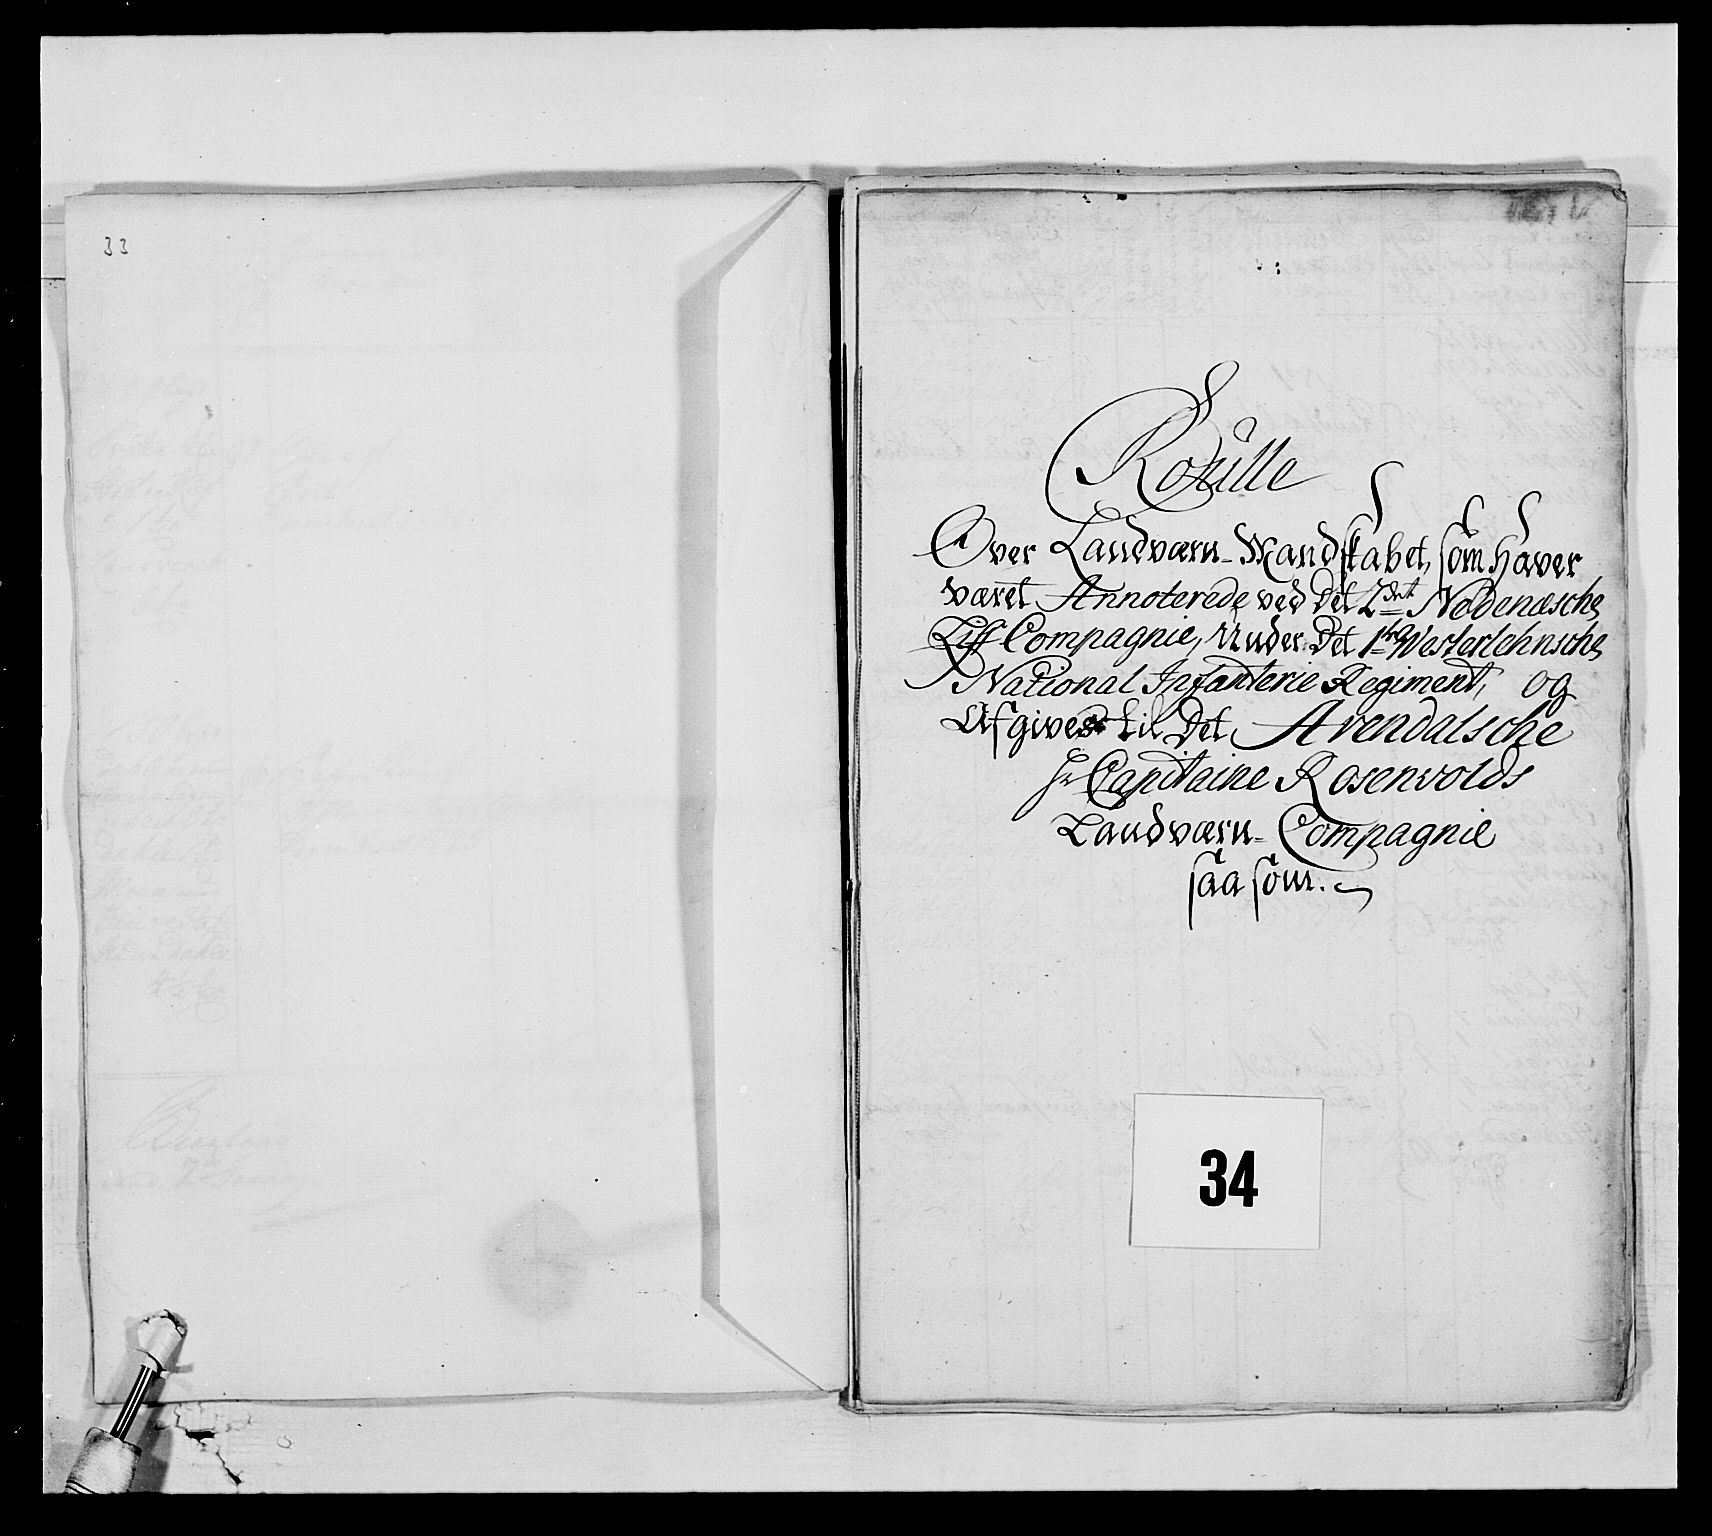 33
Roulle
Over Landværn-Mandskabet, som haver
været Annoterede ved det 2det Nedenæsche
Liff Compagnie, Under det 1ste Westerlehnsche
National Infanterie Regiment, og
Afgives til det Arendalsche
Hr Capitaine Rosenvolds
Landværn-Compagnie
saasom.
34